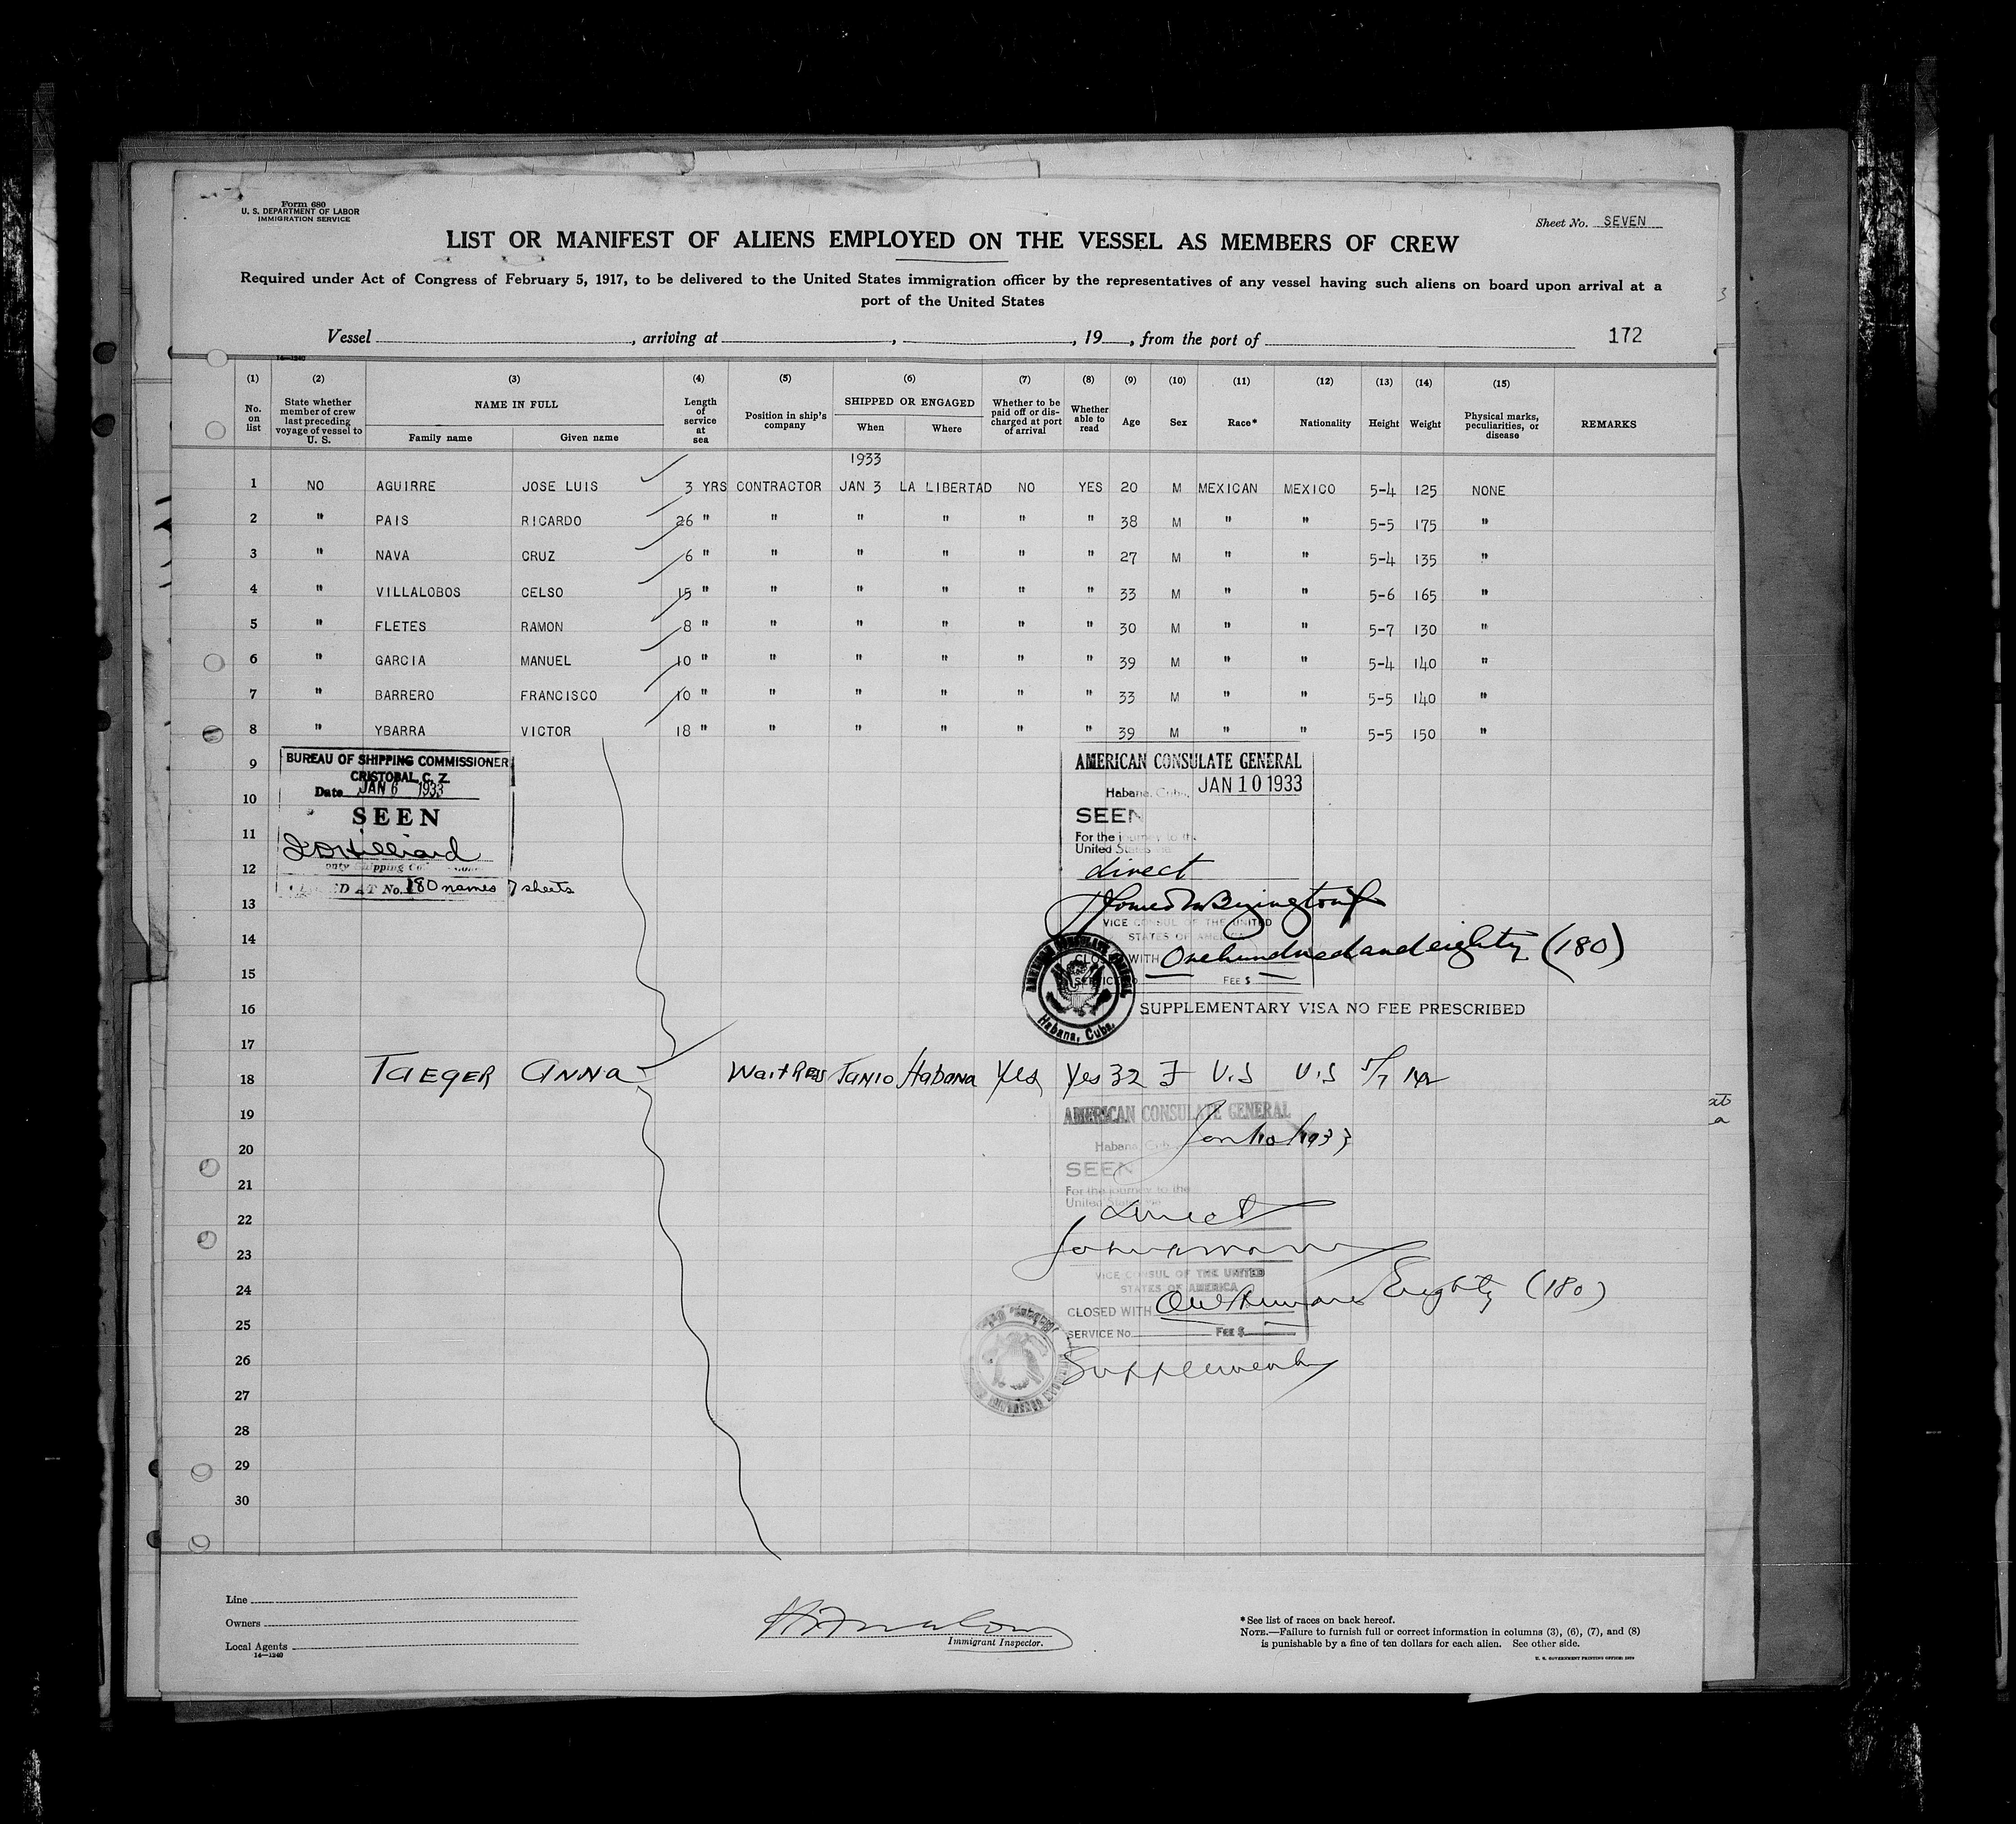 Form 680
U. S. DEPARTMENT OF LABOR
IMMIGRATION SERVICE
Sheet No. SEVEN
LIST OR MANIFEST OF ALIENS EMPLOYED ON THE VESSEL AS MEMBERS OF CREW
Required under Act of Congress of February 5, 1917, to be delivered to the United States immigration officer by the representatives of any vessel having such aliens on board upon arrival at a
port of the United States
Vessel , arriving at , , 19 , from the port of 172
14—1240
(1) (2) (3) (4) (5) (6) (7) (8) (9) (10) (11) (12) (13) (14) (15)
No. on list State whether member of crew last preceding voyage of vessel to U. S. NAME IN FULL Family name Given name Length of service at sea Position in ship's company SHIPPED OR ENGAGED When Where Whether to be paid off or discharged at port of arrival Whether able to read Age Sex Race* Nationality Height Weight Physical marks, peculiarities, or disease REMARKS
1933
1 NO AGUIRRE JOSE LUIS 3 YRS CONTRACTOR JAN 3 LA LIBERTAD NO YES 20 M MEXICAN MEXICO 5-4 125 NONE
2 " PAIS RICARDO 26 " " " " " " 38 M " " 5-5 175 "
3 " NAVA CRUZ 6 " " " " " " 27 M " " 5-4 135 "
4 " VILLALOBOS CELSO 15 " " " " " " 33 M " " 5-6 165 "
5 " FLETES RAMON 8 " " " " " " 30 M " " 5-7 130 "
6 " GARCIA MANUEL 10 " " " " " " 39 M " " 5-4 140 "
7 " BARRERO FRANCISCO 10 " " " " " " 33 M " " 5-5 140 "
8 " YBARRA VICTOR 18 " " " " " " 39 M " " 5-5 150 "
9
10
11
12
13
14
15
16
17
BUREAU OF SHIPPING COMMISSIONER
CRISTOBAL, C. Z.
Date JAN 6 1933
SEEN
Hilliard
Shipping
AT No. 180 names 7 sheets
AMERICAN CONSULATE GENERAL
Habana, Cuba, JAN 10 1933
SEEN
For the journey to the
United States
direct
VICE CONSUL OF THE UNITED
STATES OF AMERICA
CLOSED WITH One hundred and eighty (180)
SERVICE No. FEE $
AMERICAN CONSULATE GENERAL
Habana, Cuba.
SUPPLEMENTARY VISA NO FEE PRESCRIBED
18 TAEGER ANNA Waitress Jan 10 Habana Yes Yes 32 F U.S U.S 5/7 142
19
20
21
22
23
24
25
26
27
28
29
30
AMERICAN CONSULATE GENERAL
Habana, Cuba Jan 10 1933
SEEN
For the journey to the
United States
direct
VICE CONSUL OF THE UNITED
STATES OF AMERICA
CLOSED WITH One hundred Eighty (180)
SERVICE No. FEE $
Supplementary
Line
Owners
Local Agents
14—1240
Immigrant Inspector.
* See list of races on back hereof.
NOTE.—Failure to furnish full or correct information in columns (3), (6), (7), and (8)
is punishable by a fine of ten dollars for each alien. See other side.
U. S. GOVERNMENT PRINTING OFFICE: